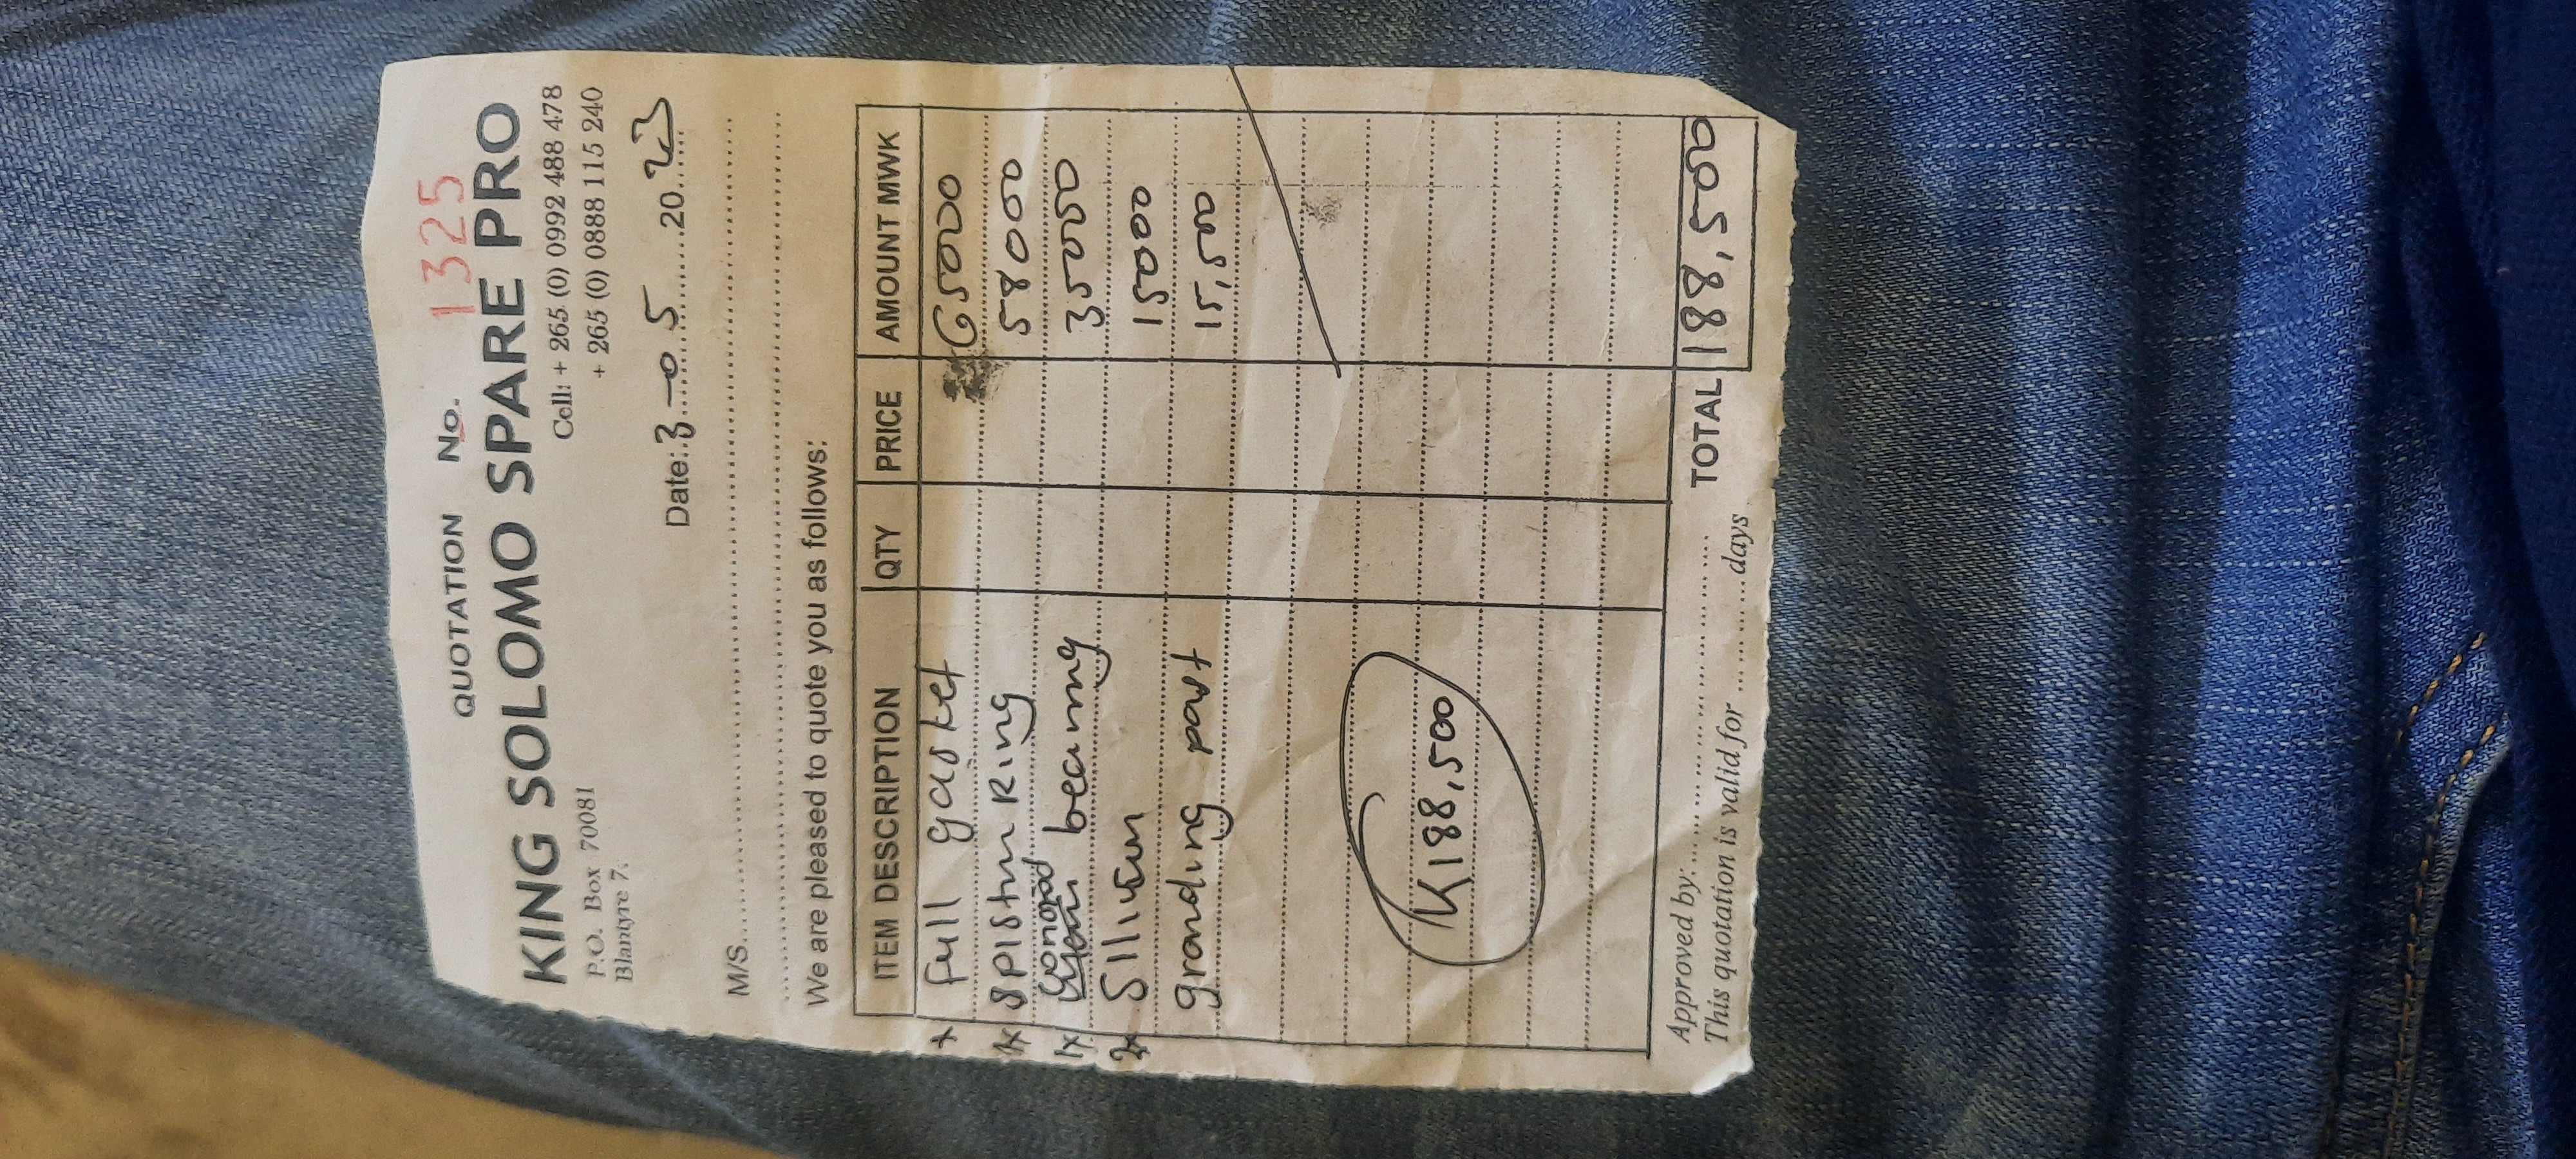 QUOTATION No. 1325
KING SOLOMO SPARE PRO
P.O. Box 70081
Blantyre 7.
Cell: + 265 (0) 0992 488 478
+ 265 (0) 0888 115 240
Date:.3-05 2023
M/S
We are pleased to quote you as follows:
ITEM DESCRIPTION QTY PRICE AMOUNT MWK
x full gasket 65000
piston Ring 58000
conrod
1x bearing 35000
2x 15000
granding past 15,500
K188,500
Approved by:
TOTAL 188,500
This quotation is valid for ............ days